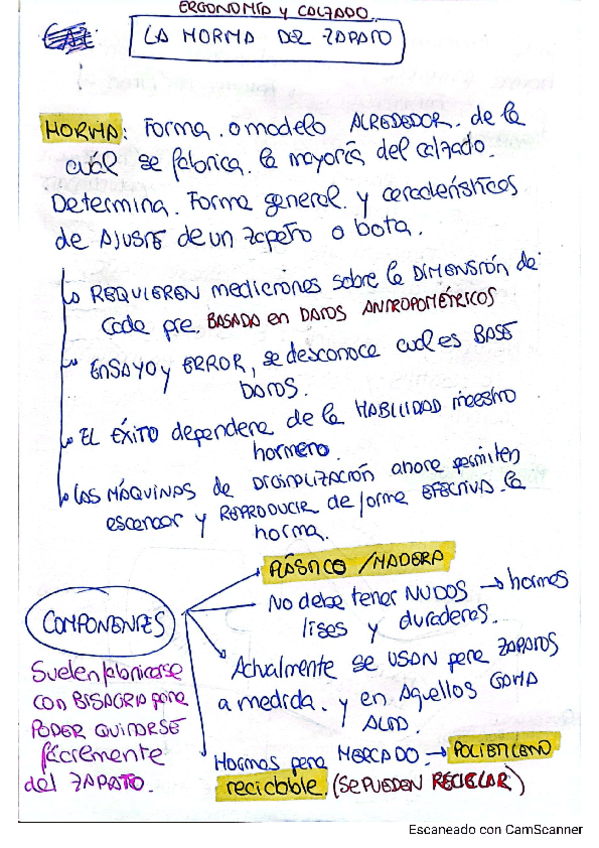 ERGONOMÍA y CALZADO
LA HORMA DEL ZAPATO
HORMA: Forma o modelo ALREDEDOR de la
cuál se fabrica la mayoría del calzado.
Determina Forma general y características
de AJUSTE de un zapato o bota.
REQUIEREN mediciones sobre la DIMENSIÓN de
cada pie, BASADA en DATOS ANTROPOMÉTRICOS
ENSAYO y ERROR, se desconoce cual es BASE
DATOS.
EL ÉXITO dependera de la HABILIDAD maestro
hormero.
LAS MÁQUINAS de DIGITALIZACIÓN ahora permiten
escanear y REPRODUCIR de forma EFECTIVA la
horma.
PLÁSTICO / MADERA
No debe tener NUDOS → hormas
lisas y duraderas.
COMPONENTES
Actualmente se USAN para ZAPATOS
a medida y en Aquellos GAMA
ALTA.
Suelen fabricarse
con BISAGRA para
PODER QUITARSE
fácilmente
del ZAPATO.
Hormas para MERCADO → POLIETILENO
reciclable. (SE PUEDEN RECICLAR)
Escaneado con CamScanner